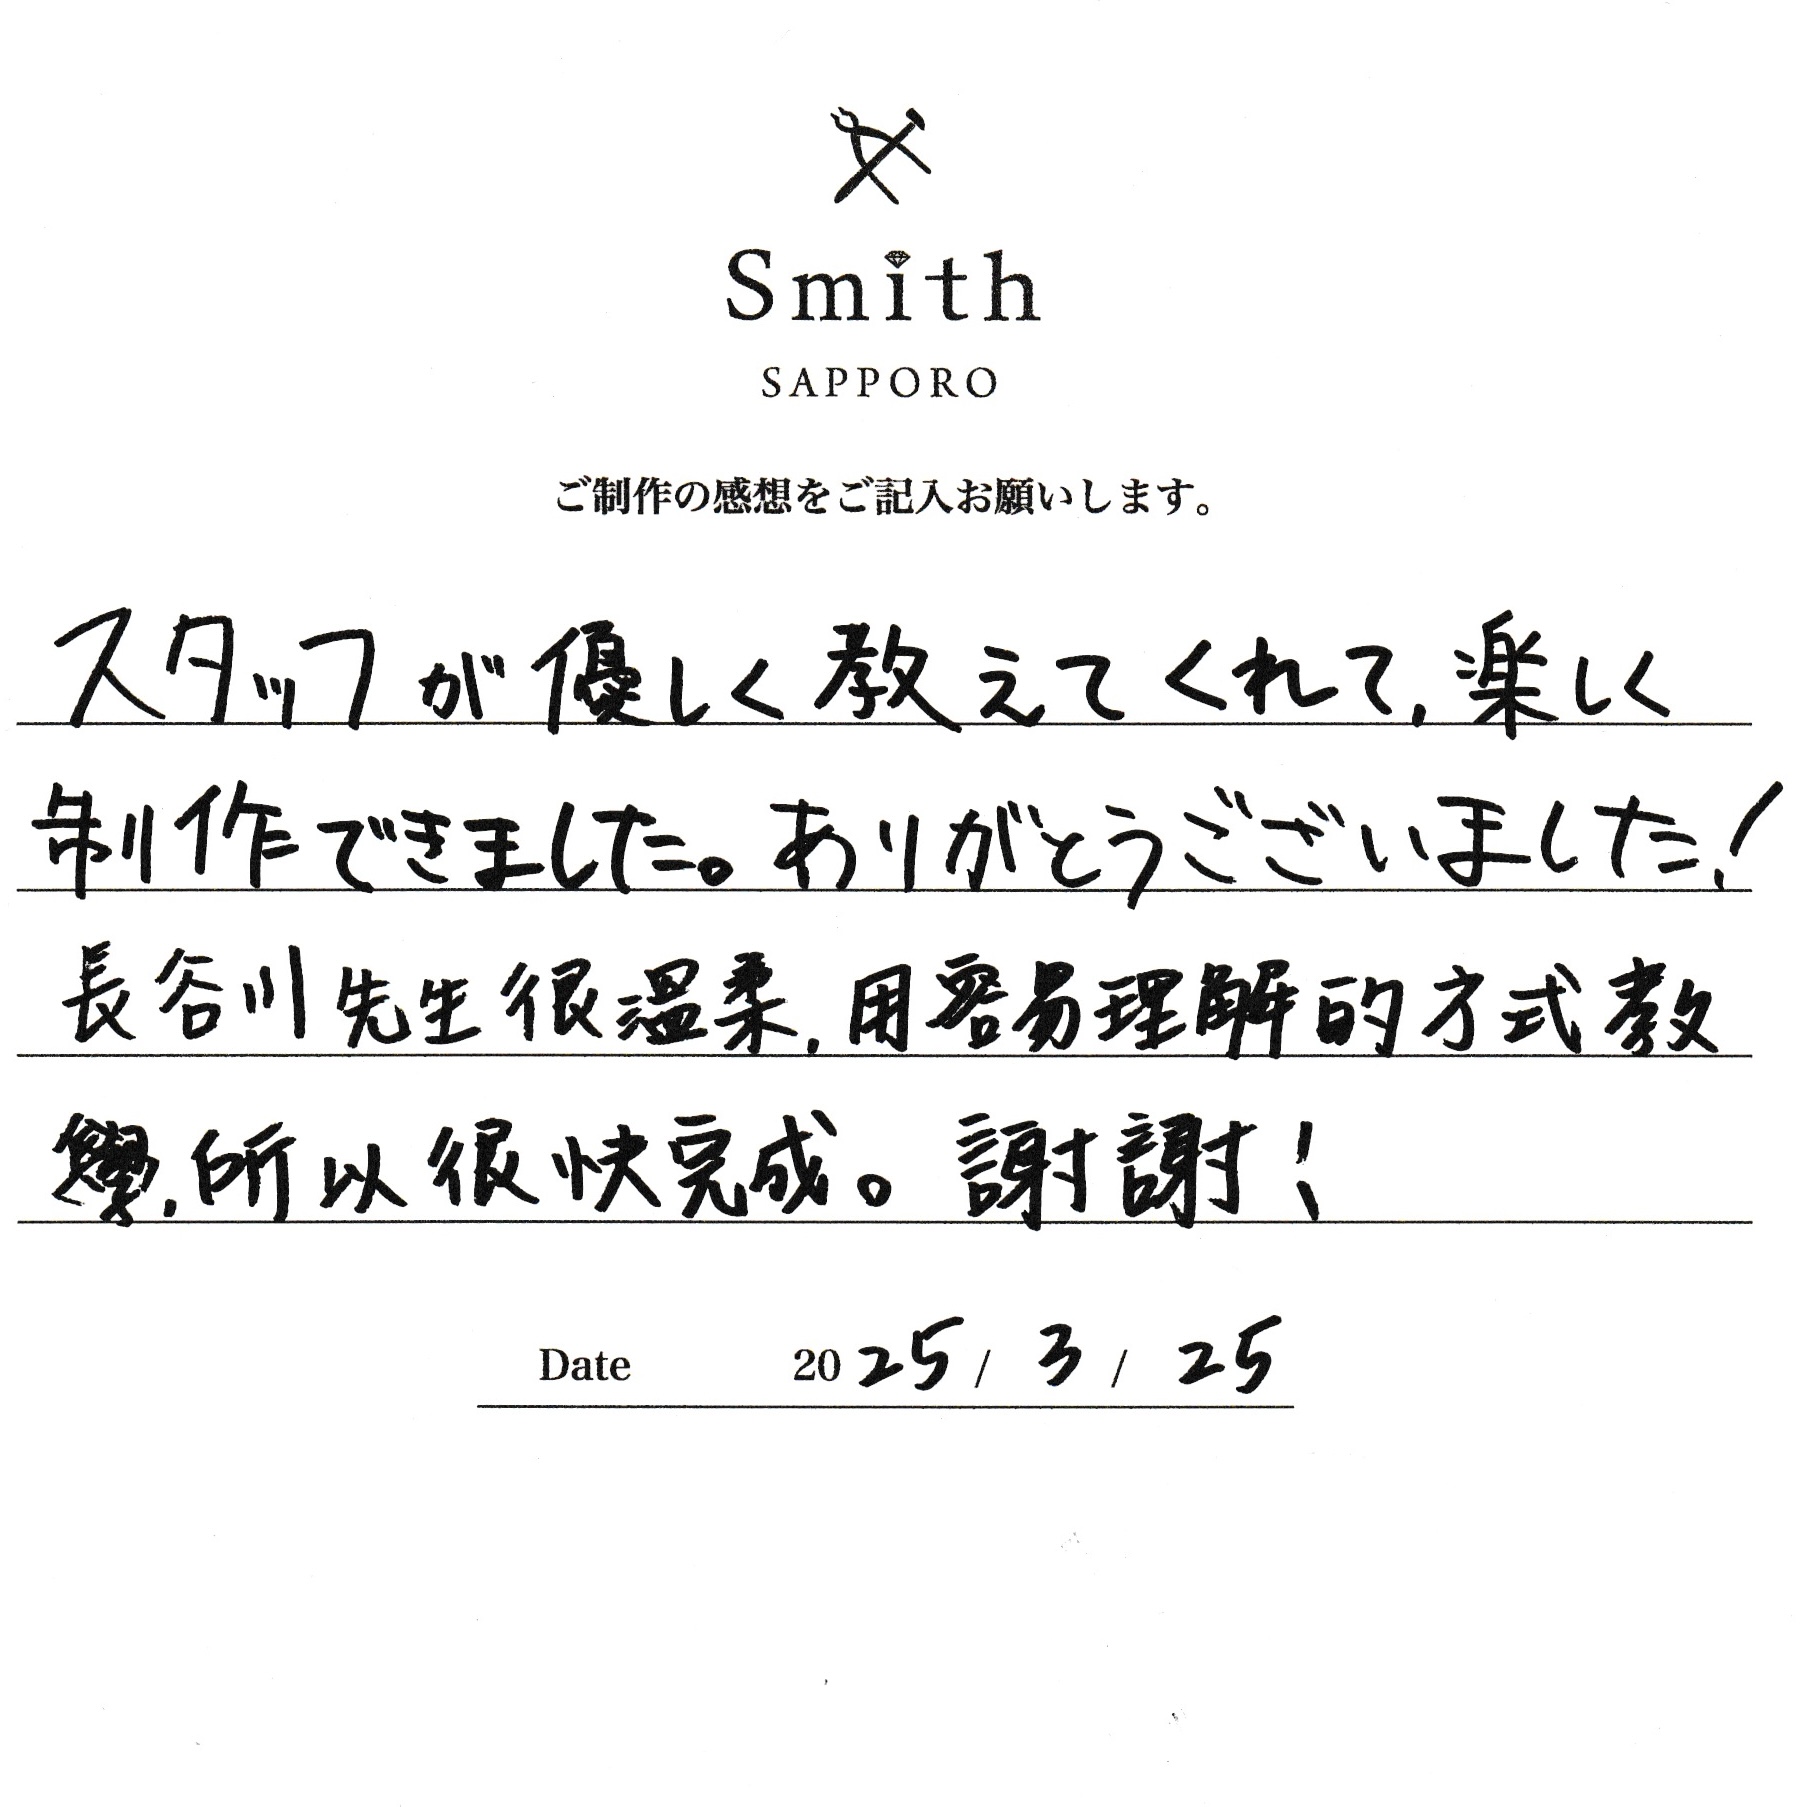 Smith
SAPPORO
ご制作の感想をご記入お願いします。
スタッフが優しく教えてくれて,楽しく
制作できました。ありがとうございました!
長谷川先生很溫柔,用容易理解的方式教
學,所以很快完成。謝謝!
Date 2025/3/25